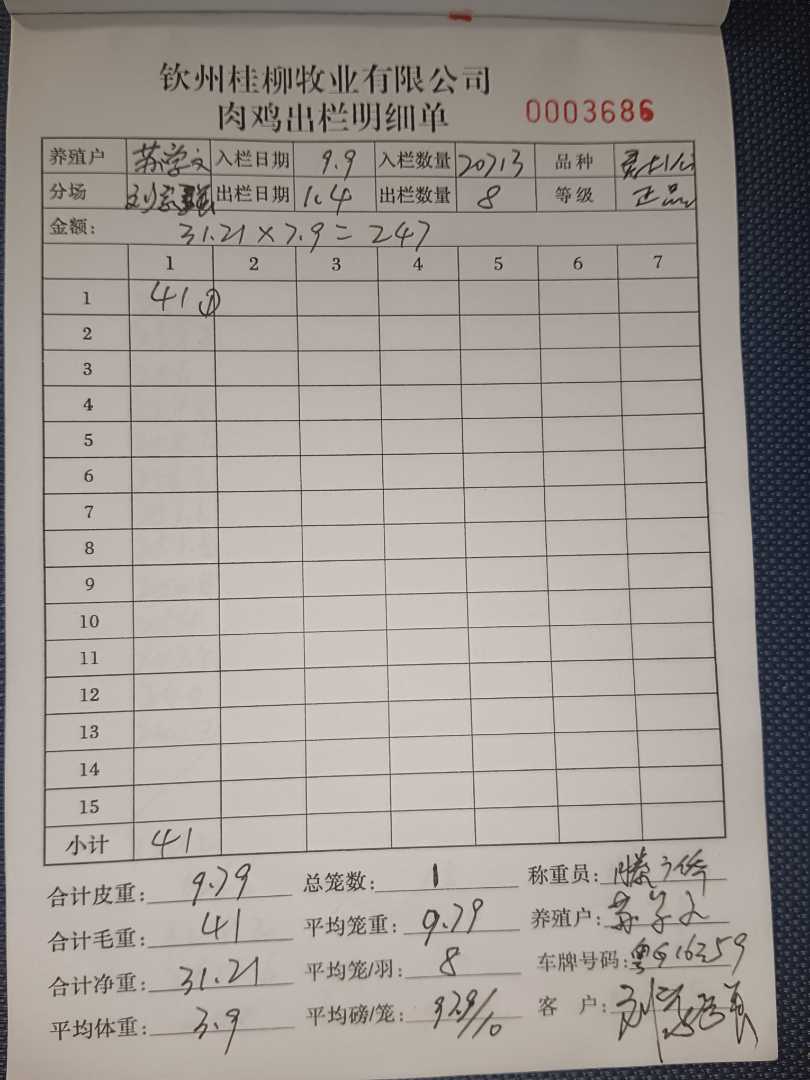 钦州桂柳牧业有限公司
肉鸡出栏明细单 0003686
养殖户 苏学文 入栏日期 9.9 入栏数量 20713 品种
分场 出栏日期 1.4 出栏数量 8 等级 正品
金额: 31.21×7.9=247
1 2 3 4 5 6 7
1 41 ①
2
3
4
5
6
7
8
9
10
11
12
13
14
15
小计 41
合计皮重: 9.79 总笼数: 1 称重员:
合计毛重: 41 平均笼重: 9.79 养殖户: 苏学文
合计净重: 31.21 平均笼/羽: 8 车牌号码:
平均体重: 3.9 平均磅/笼: 客 户: